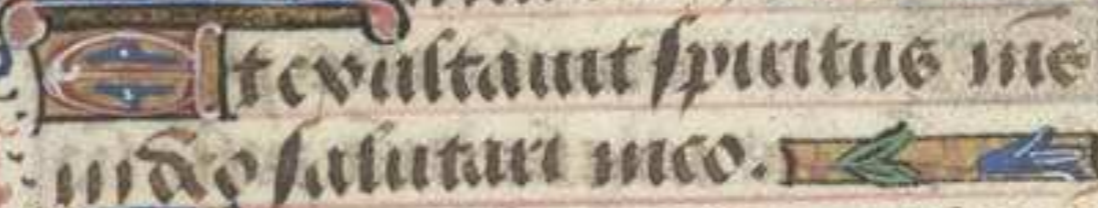 Et exultauit spiritus me᷒
in deo salutari meo.